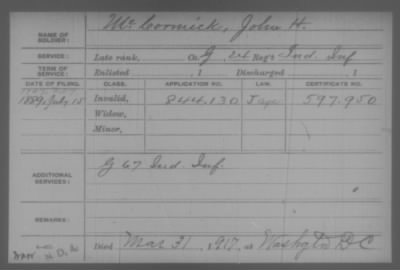 NAME OF SOLDIER: McCormick, John H.
SERVICE: Late rank, Co. G, 24 Reg't Ind. Inf.
TERM OF SERVICE: Enlisted , 1 Discharged , 1
DATE OF FILING. CLASS. APPLICATION NO. LAW. CERTIFICATE NO.
1889, July, 15 Invalid, 844.130 597.950
Widow,
Minor,
ADDITIONAL SERVICES: G 67 Ind. Inf.
REMARKS:
Died Mar 31, 1917, at Washgtn D C